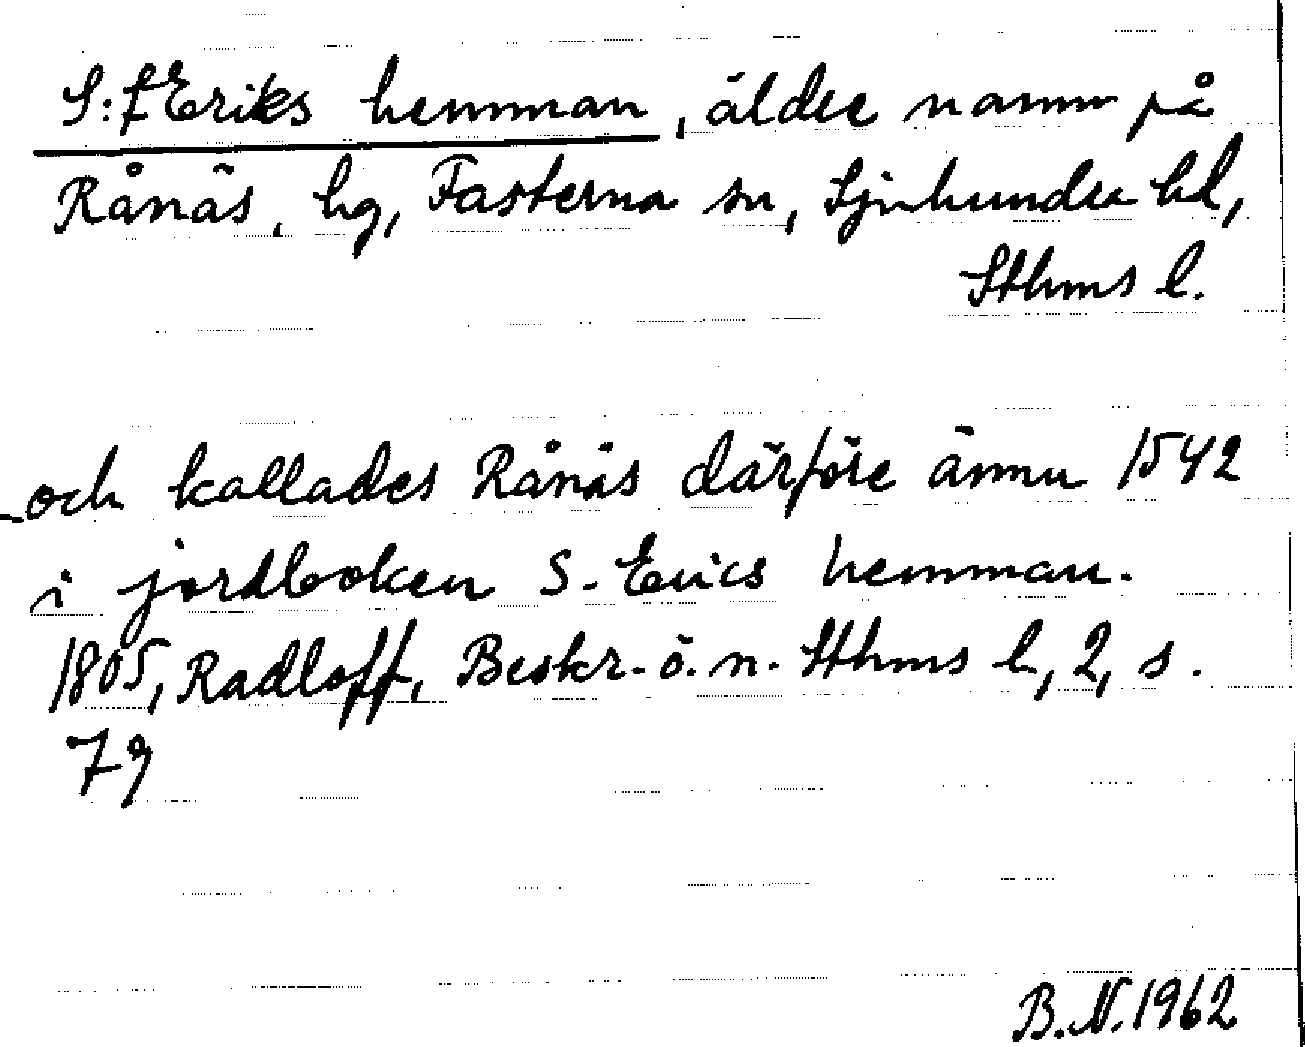 S:t Eriks hemman, äldre namn på
Rånäs, hg, Fasterna sn, Sjuhundra hd,
Sthms l.
och kallades Rånäs därföre ännu 1542
i jordboken S. Erics hemman.
1805, Radloff, Beskr. ö. n. Sthms l, 2, s.
79
B.N. 1962